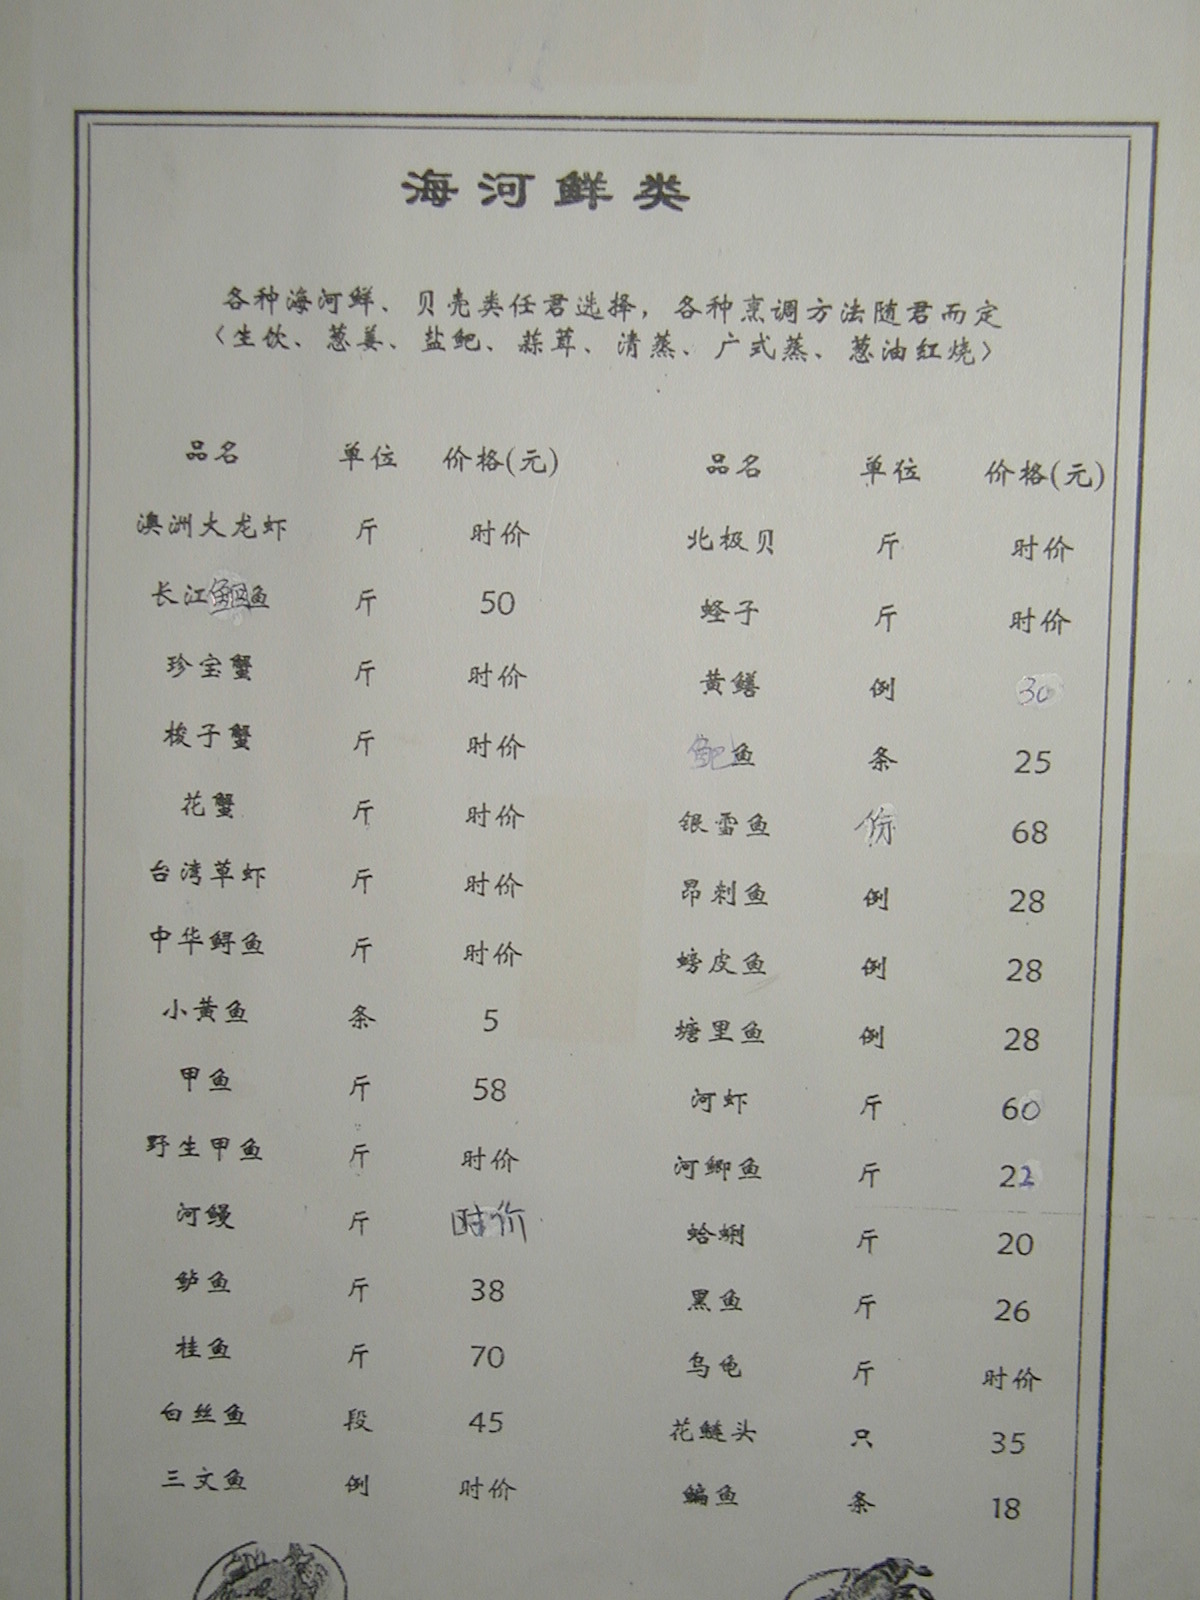 海河鲜类
各种海河鲜、贝壳类任君选择，各种烹调方法随君而定
〈生饮、葱姜、盐鲍、蒜茸、清蒸、广式蒸、葱油红烧〉
品名 单位 价格(元) 品名 单位 价格(元)
澳洲大龙虾 斤 时价 北极贝 斤 时价
长江鮰鱼 斤 50 蛏子 斤 时价
珍宝蟹 斤 时价 黄鳝 例 30
梭子蟹 斤 时价 鲍鱼 条 25
花蟹 斤 时价 银雪鱼 份 68
台湾草虾 斤 时价 昂刺鱼 例 28
中华鲟鱼 斤 时价 螃皮鱼 例 28
小黄鱼 条 5 塘里鱼 例 28
甲鱼 斤 58 河虾 斤 60
野生甲鱼 斤 时价 河鲫鱼 斤 22
河鳗 斤 时价 蛤蜊 斤 20
鲈鱼 斤 38 黑鱼 斤 26
桂鱼 斤 70 乌龟 斤 时价
白丝鱼 段 45 花鲢头 只 35
三文鱼 例 时价 鳊鱼 条 18